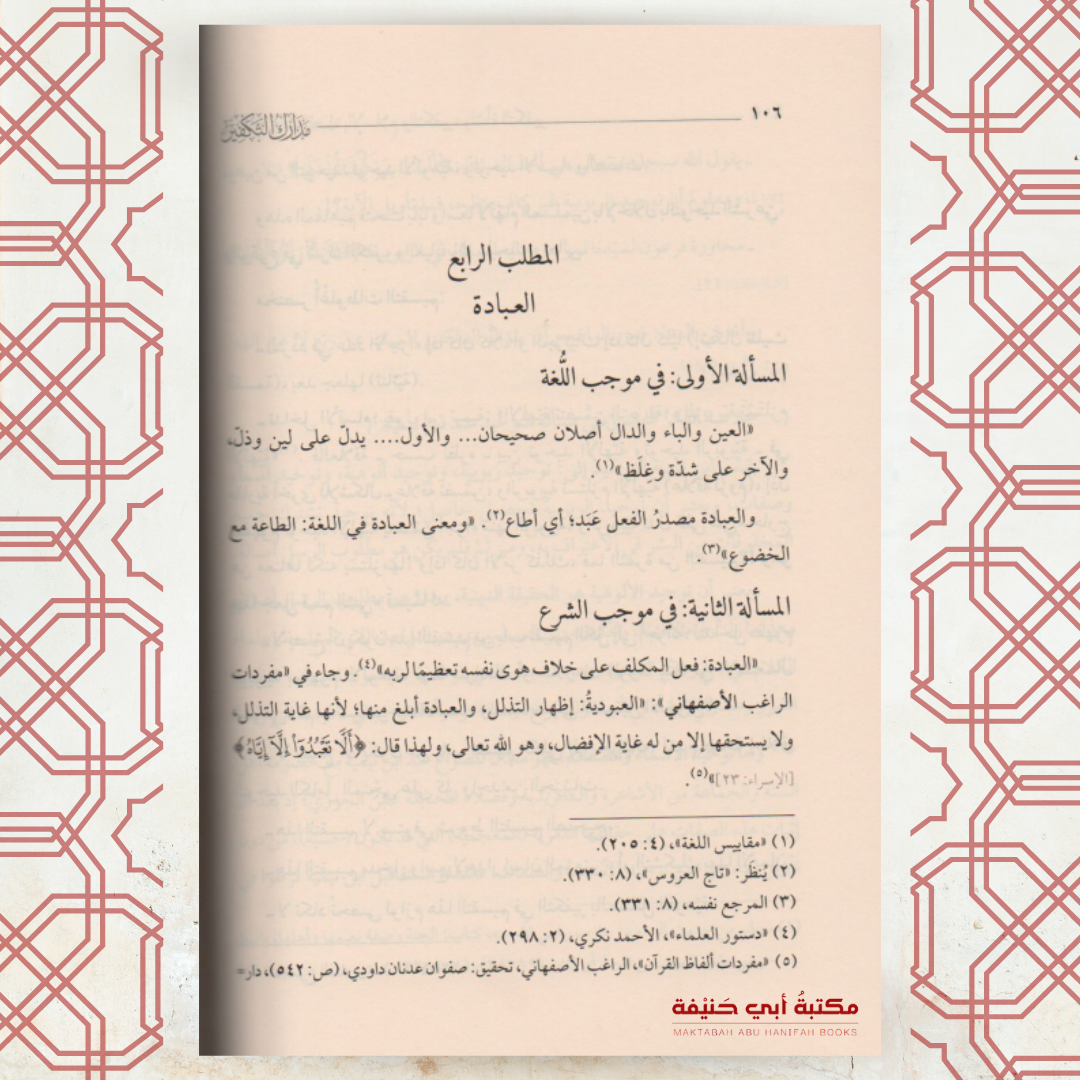 ١٠٦
مدارك التكفير
المطلب الرابع
العبادة
المسألة الأولى: في موجب اللُّغة
«العين والباء والدال أصلان صحيحان... والأول.... يدلّ على لين وذلّ،
والآخر على شدّة وغِلَظ»(١).
والعِبادة مصدرُ الفعل عَبَد؛ أي أطاع(٢). «ومعنى العبادة في اللغة: الطاعة مع
الخضوع»(٣).
المسألة الثانية: في موجب الشرع
«العبادة: فعل المكلف على خلاف هوى نفسه تعظيمًا لربه»(٤). وجاء في «مفردات
الراغب الأصفهاني»: «العبوديةُ: إظهار التذلل، والعبادة أبلغ منها؛ لأنها غاية التذلل،
ولا يستحقها إلا من له غاية الإفضال، وهو الله تعالى، ولهذا قال: ﴿أَلَّا تَعْبُدُوٓاْ إِلَّآ إِيَّاهُ﴾
[الإسراء: ٢٣]»(٥).
(١) «مقاييس اللغة»، (٤: ٢٠٥).
(٢) يُنظَر: «تاج العروس»، (٨: ٣٣٠).
(٣) المرجع نفسه، (٨: ٣٣١).
(٤) «دستور العلماء»، الأحمد نكري، (٢: ٢٩٨).
(٥) «مفردات ألفاظ القرآن»، الراغب الأصفهاني، تحقيق: صفوان عدنان داودي، (ص: ٥٤٢)، دار=
مكتبةُ أبي حَنيْفة
MAKTABAH ABU HANIFAH BOOKS